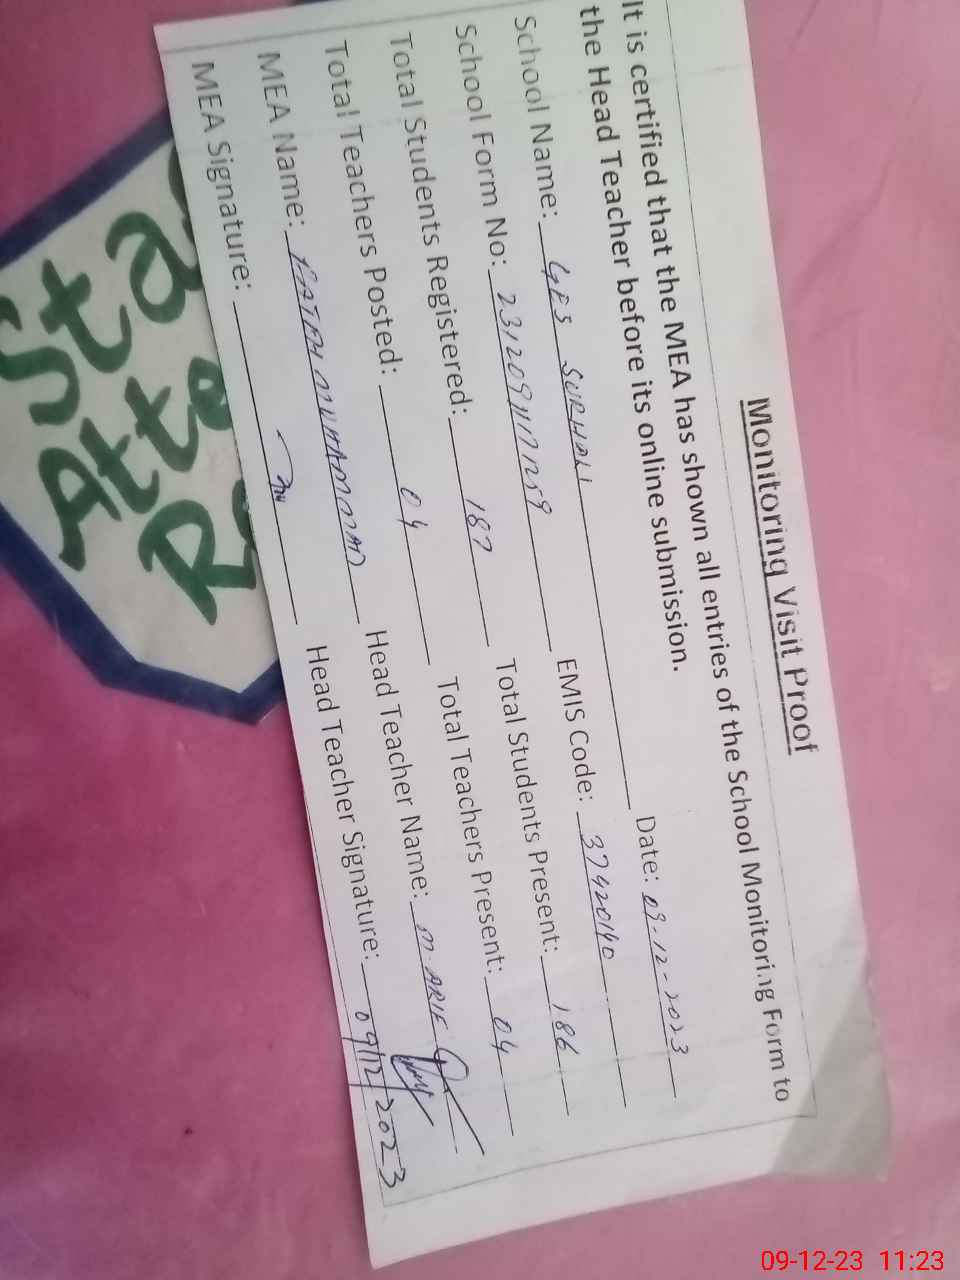 Monitoring Visit Proof
It is certified that the MEA has shown all entries of the School Monitoring Form to
the Head Teacher before its online submission.
School Name: GES SURHALI Date: 09-12-2023
School Form No: EMIS Code: 37420140
Total Students Registered: 187 Total Students Present: 186
Total Teachers Posted: 04 Total Teachers Present: 04
MEA Name: FATEH MUHAMMAD Head Teacher Name: M ARIF
MEA Signature: Head Teacher Signature: 09/12/2023
Sta
St Atte
At R
09-12-23 11:23